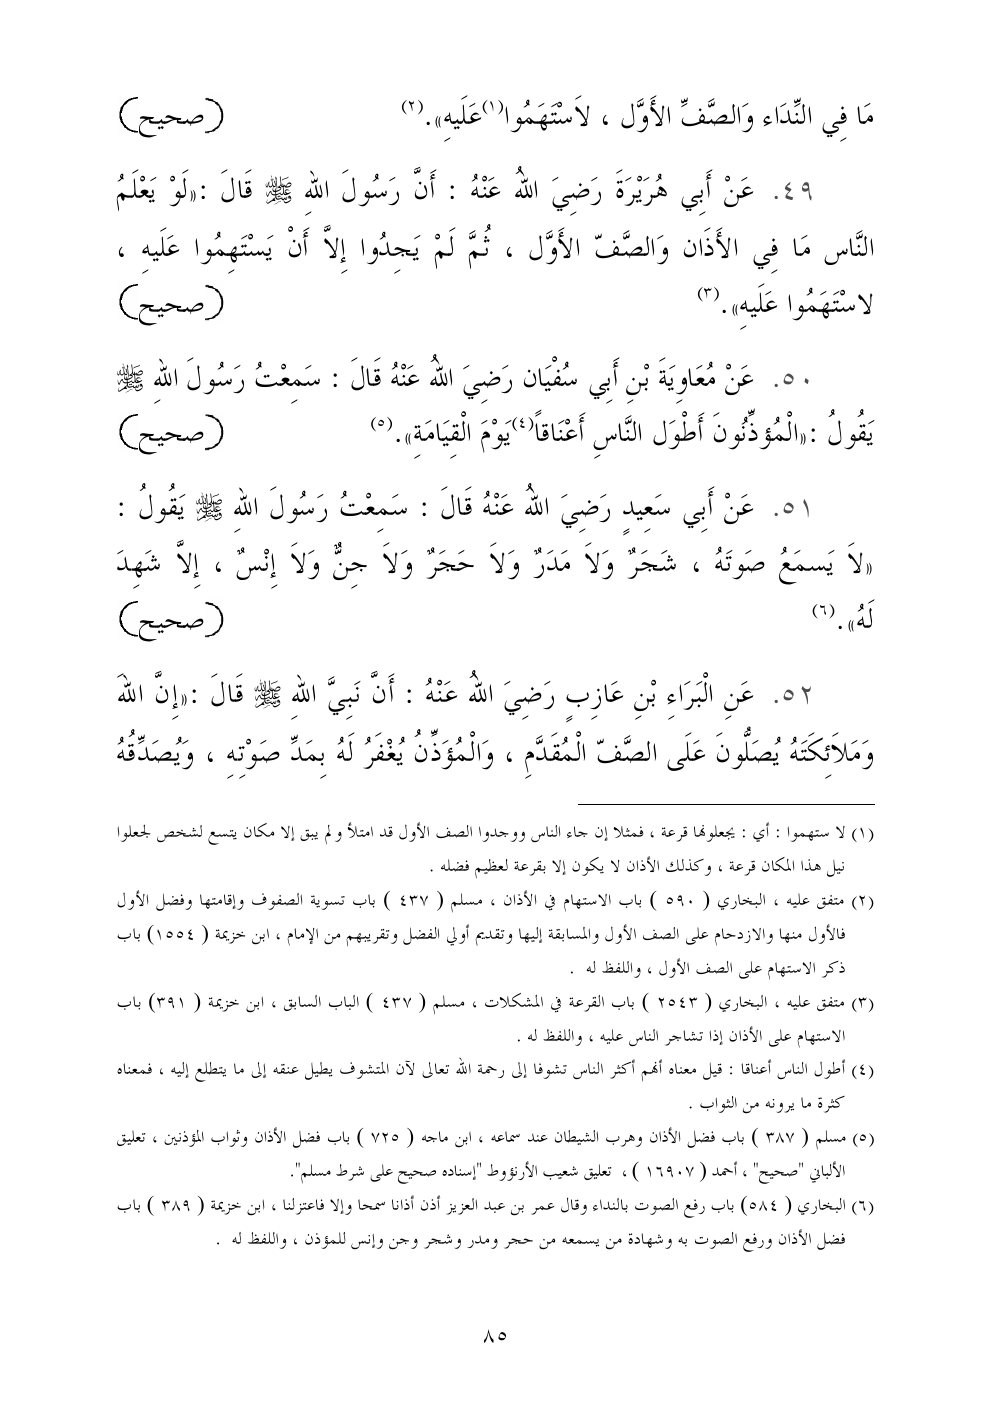 مَا فِي النِّدَاء وَالصَّفِّ الأَوَّل ، لاَسْتَهَمُوا(١)عَلَيهِ».(٢) (صحيح)
٤٩. عَنْ أَبِي هُرَيْرَةَ رَضِيَ اللهُ عَنْهُ : أَنَّ رَسُولَ اللهِ ﷺ قَالَ :«لَوْ يَعْلَمُ
النَّاس مَا فِي الأَذَان وَالصَّفّ الأَوَّل ، ثُمَّ لَمْ يَجِدُوا إِلاَّ أَنْ يَسْتَهِمُوا عَلَيهِ ،
لاسْتَهَمُوا عَلَيهِ».(٣) (صحيح)
٥٠. عَنْ مُعَاوِيَةَ بْنِ أَبِي سُفْيَان رَضِيَ اللهُ عَنْهُ قَالَ : سَمِعْتُ رَسُولَ اللهِ ﷺ
يَقُولُ :«الْمُؤذِّنُونَ أَطْوَل النَّاس أَعْنَاقاً(٤)يَوْمَ الْقِيَامَةِ».(٥) (صحيح)
٥١. عَنْ أَبِي سَعِيدٍ رَضِيَ اللهُ عَنْهُ قَالَ : سَمِعْتُ رَسُولَ اللهِ ﷺ يَقُولُ :
«لاَ يَسمَعُ صَوتَهُ ، شَجَرٌ وَلاَ مَدَرٌ وَلاَ حَجَرٌ وَلاَ جِنٌّ وَلاَ إِنْسٌ ، إِلاَّ شَهِدَ
لَهُ».(٦) (صحيح)
٥٢. عَنِ الْبَرَاءِ بْنِ عَازِبٍ رَضِيَ اللهُ عَنْهُ : أَنَّ نَبِيَّ اللهِ ﷺ قَالَ :«إِنَّ اللهَ
وَمَلاَئِكَتَهُ يُصَلُّونَ عَلَى الصَّفّ الْمُقَدَّمِ ، وَالْمُؤَذِّنُ يُغْفَرُ لَهُ بِمَدِّ صَوْتِهِ ، وَيُصَدِّقُهُ
(١) لا ستهموا : أي : يجعلونها قرعة ، فمثلا إن جاء الناس ووجدوا الصف الأول قد امتلأ ولم يبق إلا مكان يتسع لشخص لجعلوا
نيل هذا المكان قرعة ، وكذلك الأذان لا يكون إلا بقرعة لعظيم فضله .
(٢) متفق عليه ، البخاري ( ٥٩٠ ) باب الاستهام في الأذان ، مسلم ( ٤٣٧ ) باب تسوية الصفوف وإقامتها وفضل الأول
فالأول منها والازدحام على الصف الأول والمسابقة إليها وتقديم أولي الفضل وتقريبهم من الإمام ، ابن خزيمة ( ١٥٥٤) باب
ذكر الاستهام على الصف الأول ، واللفظ له .
(٣) متفق عليه ، البخاري ( ٢٥٤٣ ) باب القرعة في المشكلات ، مسلم ( ٤٣٧ ) الباب السابق ، ابن خزيمة ( ٣٩١) باب
الاستهام على الأذان إذا تشاجر الناس عليه ، واللفظ له .
(٤) أطول الناس أعناقا : قيل معناه أنهم أكثر الناس تشوفا إلى رحمة الله تعالى لآن المتشوف يطيل عنقه إلى ما يتطلع إليه ، فمعناه
كثرة ما يرونه من الثواب .
(٥) مسلم ( ٣٨٧ ) باب فضل الأذان وهرب الشيطان عند سماعه ، ابن ماجه ( ٧٢٥ ) باب فضل الأذان وثواب المؤذنين ، تعليق
الألباني "صحيح" ، أحمد ( ١٦٩٠٧ ) ، تعليق شعيب الأرنؤوط "إسناده صحيح على شرط مسلم".
(٦) البخاري ( ٥٨٤) باب رفع الصوت بالنداء وقال عمر بن عبد العزيز أذن أذانا سمحا وإلا فاعتزلنا ، ابن خزيمة ( ٣٨٩ ) باب
فضل الأذان ورفع الصوت به وشهادة من يسمعه من حجر ومدر وشجر وجن وإنس للمؤذن ، واللفظ له .
٨٥